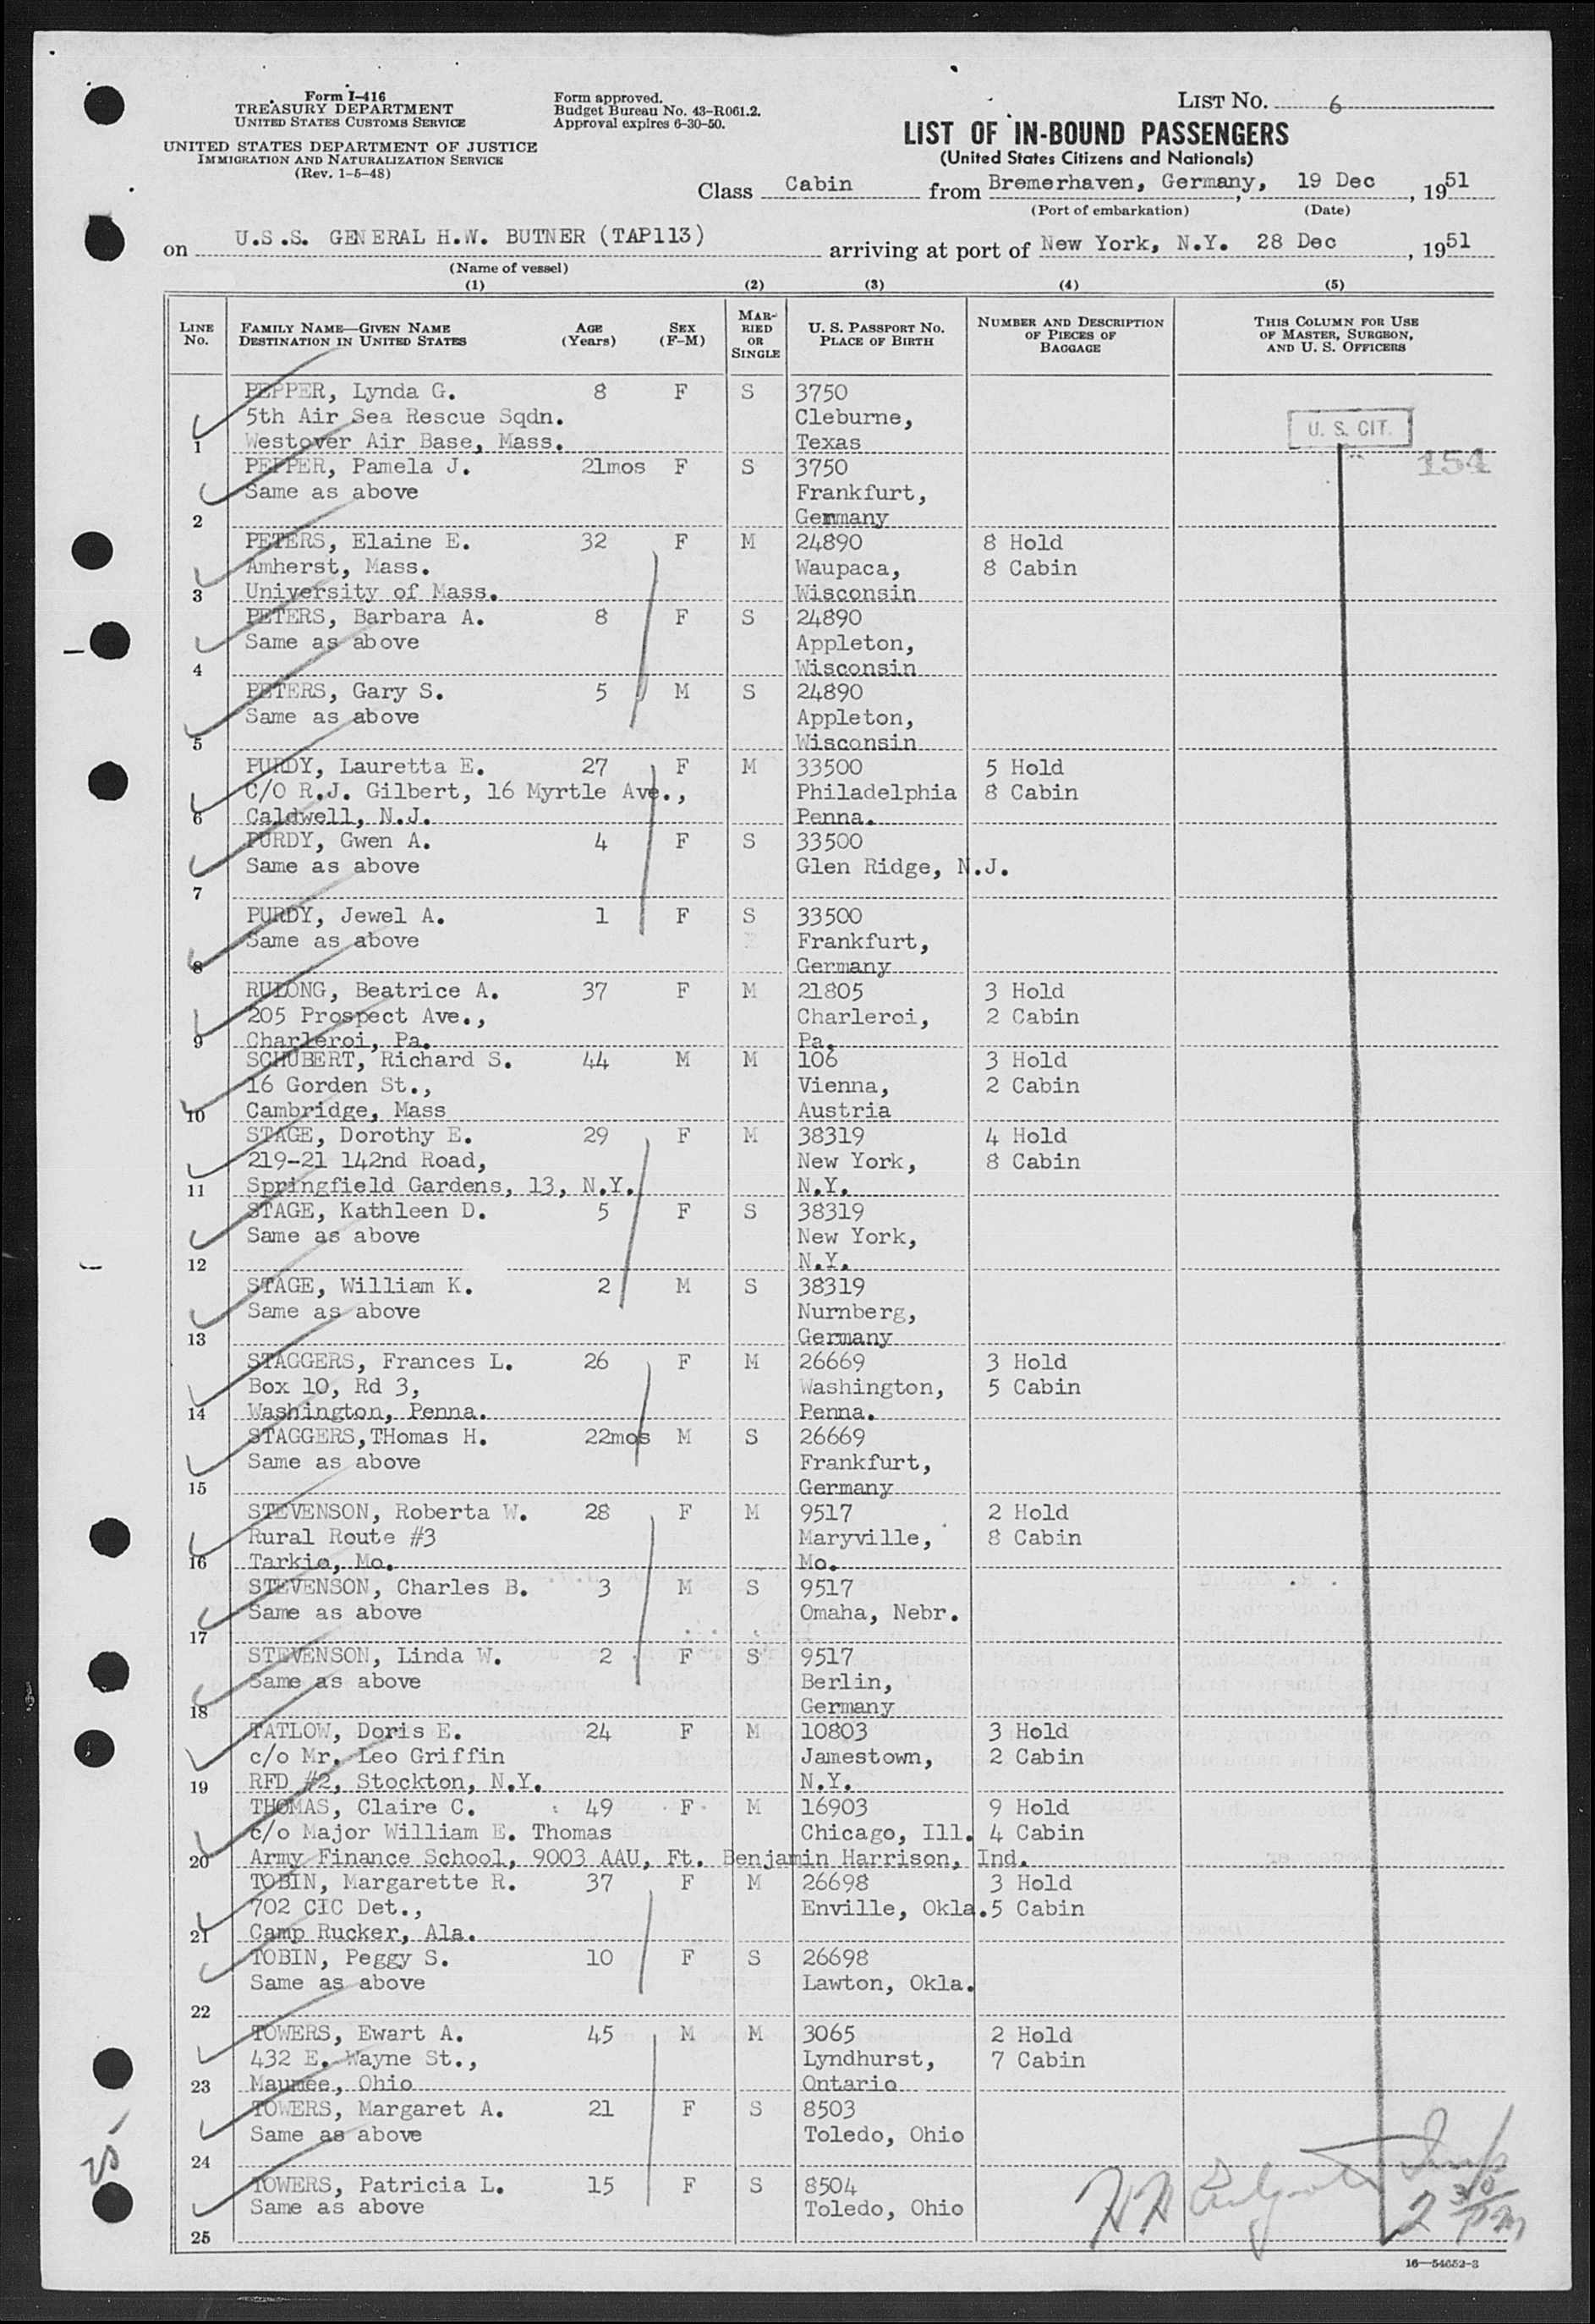 Form I-416
TREASURY DEPARTMENT
UNITED STATES CUSTOMS SERVICE
UNITED STATES DEPARTMENT OF JUSTICE
IMMIGRATION AND NATURALIZATION SERVICE
(Rev. 1-5-48)
Form approved.
Budget Bureau No. 43-R061.2.
Approval expires 6-30-50.
LIST NO. 6
LIST OF IN-BOUND PASSENGERS
(United States Citizens and Nationals)
Class Cabin from Bremerhaven, Germany, 19 Dec, 1951
(Port of embarkation) (Date)
on U.S.S. GENERAL H.W. BUTNER (TAP113) arriving at port of New York, N.Y. 28 Dec, 1951
(Name of vessel)
(1) (2) (3) (4) (5)
LINE NO. FAMILY NAME—GIVEN NAME DESTINATION IN UNITED STATES AGE (Years) SEX (F-M) MARRIED OR SINGLE U. S. PASSPORT NO. PLACE OF BIRTH NUMBER AND DESCRIPTION OF PIECES OF BAGGAGE THIS COLUMN FOR USE OF MASTER, SURGEON, AND U. S. OFFICERS
PEPPER, Lynda G. 8 F S 3750
5th Air Sea Rescue Sqdn. Cleburne, U. S. CIT.
1 Westover Air Base, Mass. Texas
PEPPER, Pamela J. 21mos F S 3750 154
Same as above Frankfurt,
2 Germany
PETERS, Elaine E. 32 F M 24890 8 Hold
Amherst, Mass. Waupaca, 8 Cabin
3 University of Mass. Wisconsin
PETERS, Barbara A. 8 F S 24890
Same as above Appleton,
4 Wisconsin
PETERS, Gary S. 5 M S 24890
Same as above Appleton,
5 Wisconsin
PURDY, Lauretta E. 27 F M 33500 5 Hold
C/O R.J. Gilbert, 16 Myrtle Ave., Philadelphia 8 Cabin
6 Caldwell, N.J. Penna.
PURDY, Gwen A. 4 F S 33500
Same as above Glen Ridge, N.J.
7
PURDY, Jewel A. 1 F S 33500
Same as above Frankfurt,
8 Germany
RULONG, Beatrice A. 37 F M 21805 3 Hold
205 Prospect Ave., Charleroi, 2 Cabin
9 Charleroi, Pa. Pa.
SCHUBERT, Richard S. 44 M M 106 3 Hold
16 Gorden St., Vienna, 2 Cabin
10 Cambridge, Mass Austria
STAGE, Dorothy E. 29 F M 38319 4 Hold
219-21 142nd Road, New York, 8 Cabin
11 Springfield Gardens, 13, N.Y. N.Y.
STAGE, Kathleen D. 5 F S 38319
Same as above New York,
12 N.Y.
STAGE, William K. 2 M S 38319
Same as above Nurnberg,
13 Germany
STAGGERS, Frances L. 26 F M 26669 3 Hold
Box 10, Rd 3, Washington, 5 Cabin
14 Washington, Penna. Penna.
STAGGERS,THomas H. 22mos M S 26669
Same as above Frankfurt,
15 Germany
STEVENSON, Roberta W. 28 F M 9517 2 Hold
Rural Route #3 Maryville, 8 Cabin
16 Tarkio, Mo. Mo.
STEVENSON, Charles B. 3 M S 9517
Same as above Omaha, Nebr.
17
STEVENSON, Linda W. 2 F S 9517
Same as above Berlin,
18 Germany
TATLOW, Doris E. 24 F M 10803 3 Hold
c/o Mr. Leo Griffin Jamestown, 2 Cabin
19 RFD #2, Stockton, N.Y. N.Y.
THOMAS, Claire C. 49 F M 16903 9 Hold
c/o Major William E. Thomas Chicago, Ill. 4 Cabin
20 Army Finance School, 9003 AAU, Ft. Benjamin Harrison, Ind.
TOBIN, Margarette R. 37 F M 26698 3 Hold
702 CIC Det., Enville, Okla. 5 Cabin
21 Camp Rucker, Ala.
TOBIN, Peggy S. 10 F S 26698
Same as above Lawton, Okla.
22
TOWERS, Ewart A. 45 M M 3065 2 Hold
432 E. Wayne St., Lyndhurst, 7 Cabin
23 Maumee, Ohio Ontario
TOWERS, Margaret A. 21 F S 8503
Same as above Toledo, Ohio
24
TOWERS, Patricia L. 15 F S 8504
Same as above Toledo, Ohio
25
25
16—54652-3